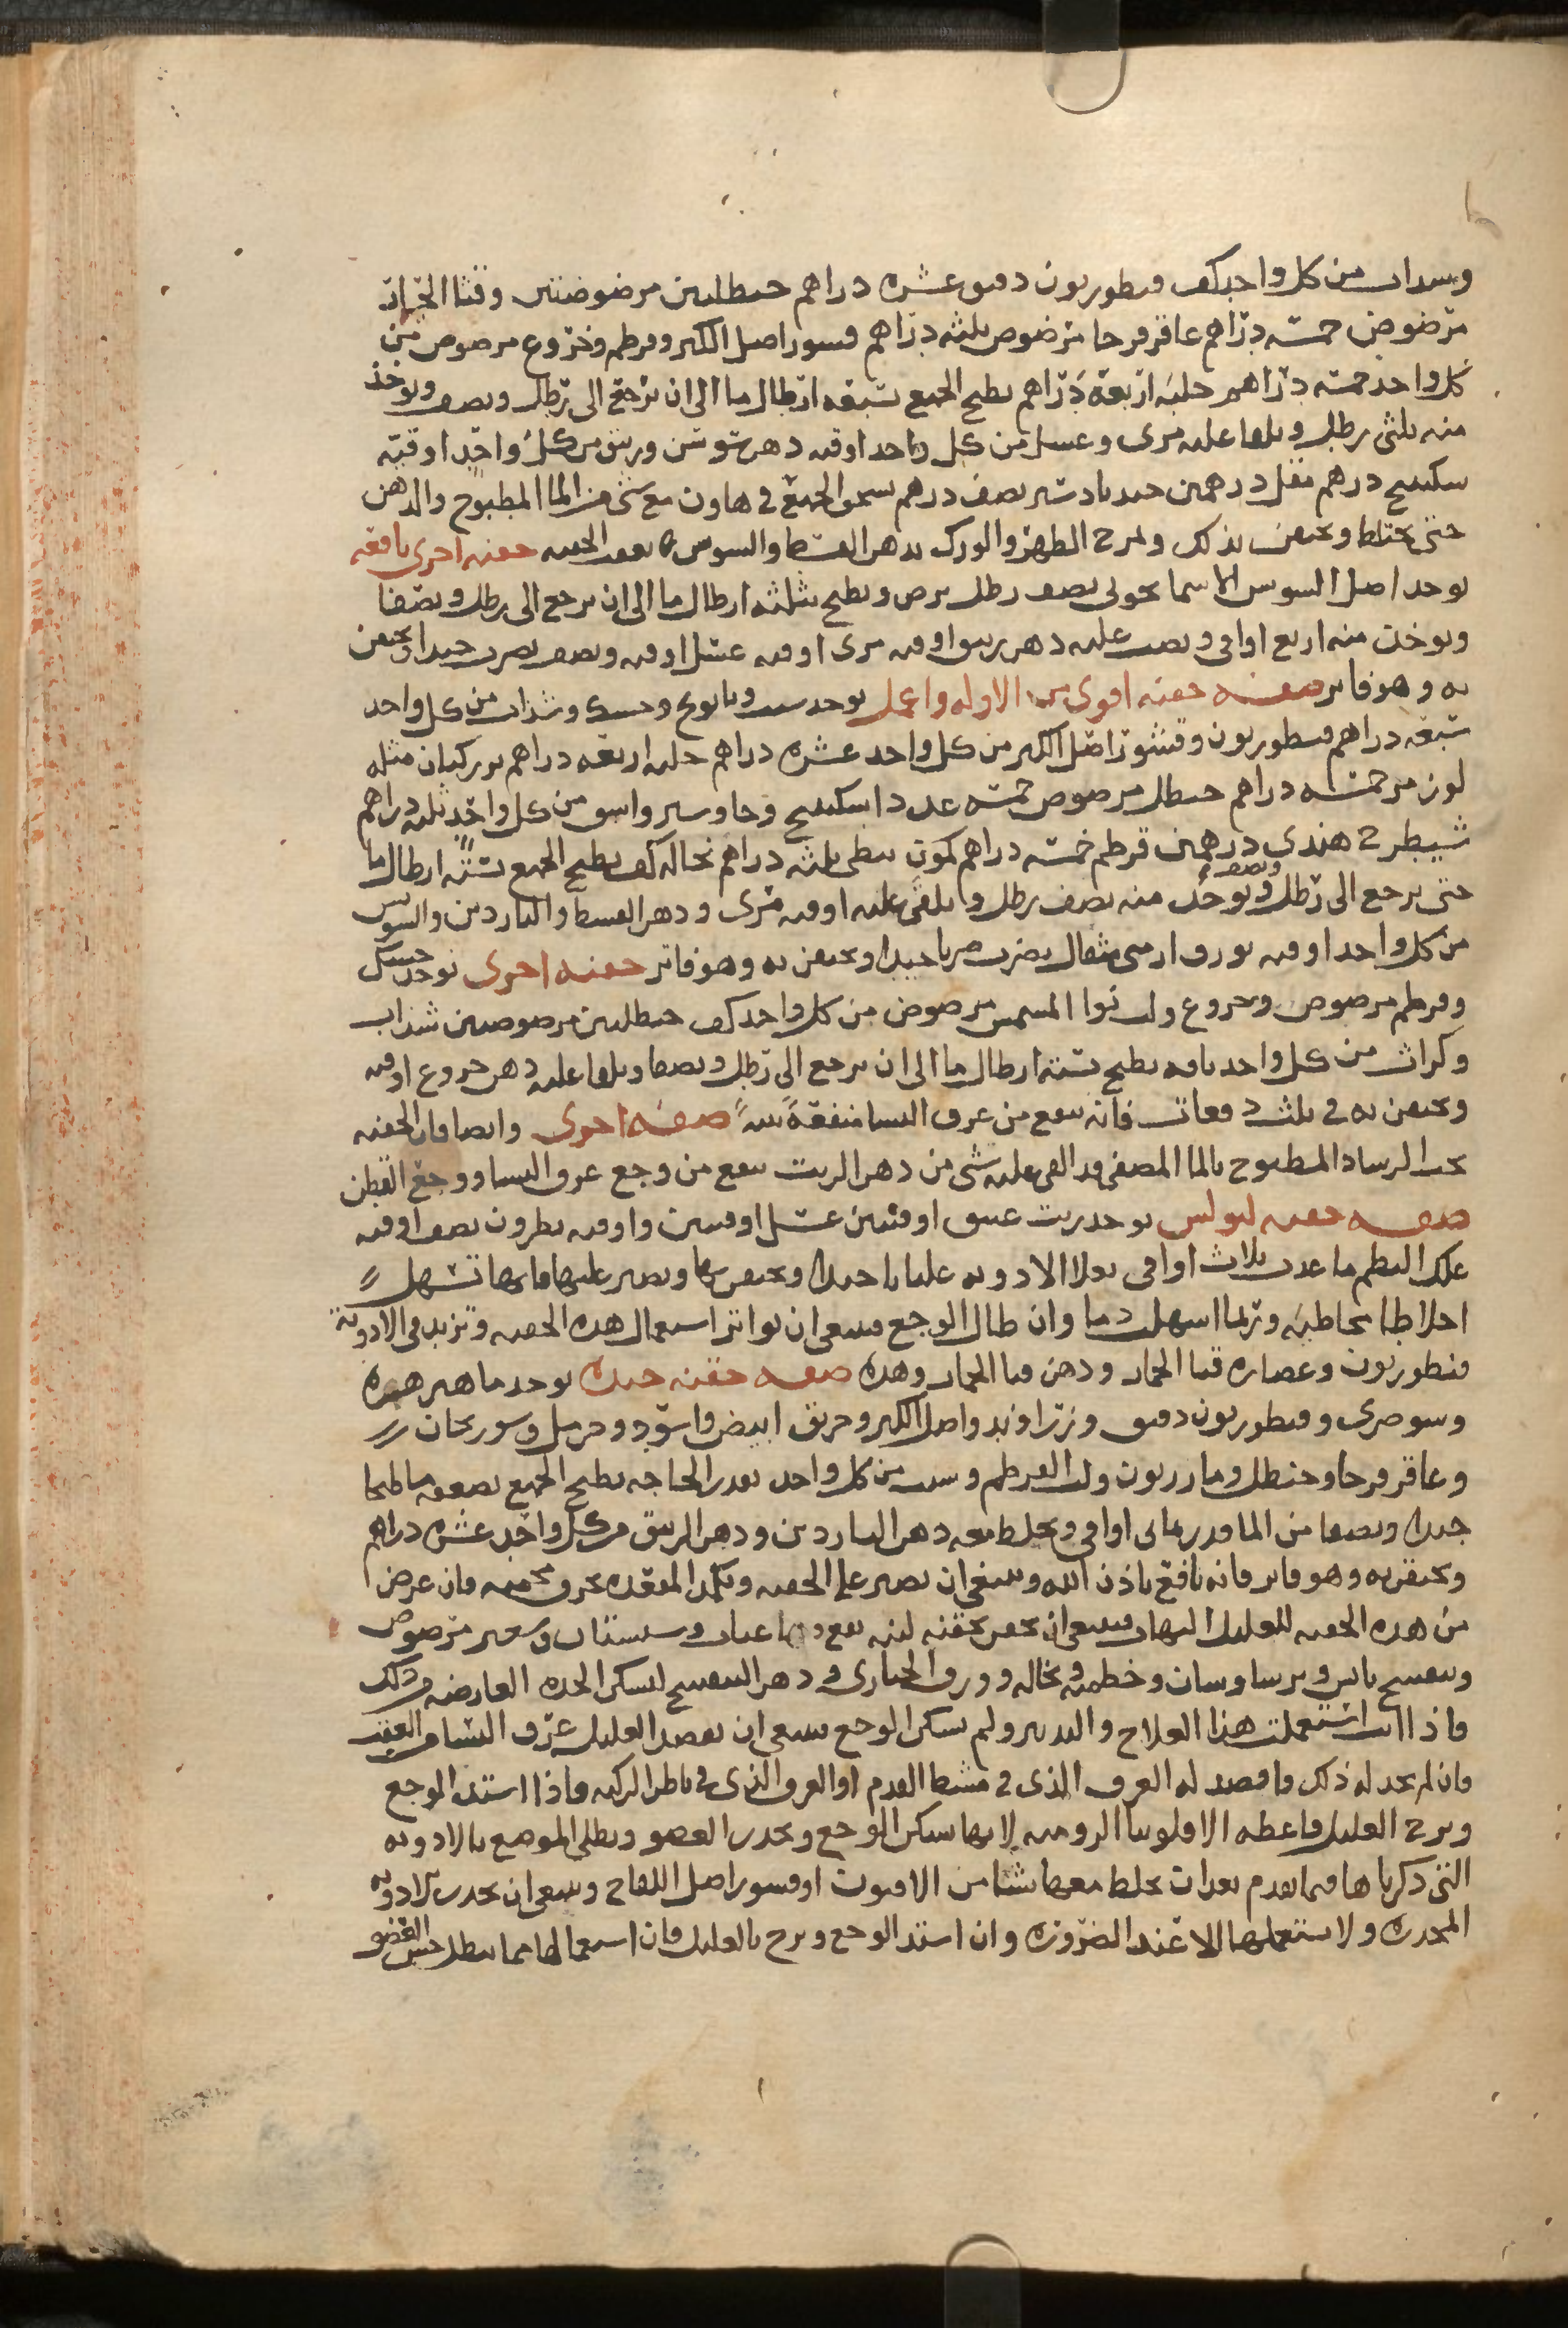 وسداب من كل واحد كف قنطوريون دقيق عشره دراهم حنطلتين مرضوضتين وقثا الحمار
مرضوض خمسه دراهم عاقرقرحا مرضوض ثلثه دراهم قشور اصل الكبر وقرطم وخروع مرضوض من
كل واحد خمسه دراهم حلبه اربعة دراهم يطبخ الجميع بسبعه ارطال ما الى ان يرجع الى رطل ونصف ويوخذ
منه ثلثى رطل ويلقا عليه مرى وعسل من كل واحد اوقيه دهن سوسن وزيبق من كل واحد اوقيه
سكبينج درهم مقل درهمين جندبادستر نصف درهم يسحق الجميع فى هاون مع شى من الما المطبوخ والدهن
حتى يختلط ويحتقن بذلك ويمرخ الظهر والورك بدهن القسط والسوسن بعقب الحقنه حقنه اخرى نافعه
يوخذ اصل السوس الاسمانجونى نصف رطل يرض ويطبخ بثلثه ارطال ما الى ان يرجع الى رطل ونصفا
ويوخذ منه اربع اواقى ويصب عليه دهن زيبق اوقيه مرى اوقيه عسل اوقيه ونصف يضرب جيدا ويحتقن
به وهو فاتر صفه حقنه اقوى من الاوله واعمل يوخذ شبت وبابونج وحسك وشذاب من كل واحد
سبعه دراهم قنطوريون وقشور اصل الكبر من كل واحد عشره دراهم حلبه اربعه دراهم بزر كتان مثله
لوز مر خمسه دراهم حنظل مرضوض خمسه عددا سكبينج وجاوشير واشق من كل واحد ثلثه دراهم
شيطرج هندى درهمين قرطم خمسه دراهم كمون نبطى ثلثه دراهم نخاله كف يطبخ الجميع بستة ارطال ما
حتى يرجع الى رطل ونصف ويوخذ منه نصف رطل ويلقى عليه اوقيه مرى ودهن القسط والناردين والسوسن
من كل واحد اوقيه بورق ارمنى مثقال يضرب ضربا جيدا ويحتقن به وهو فاتر حقنه اخرى يوخذ حسك
وقرطم مرضوض وخروع ولب نوا المشمش مرضوض من كل واحد كف حنظلتين مرضوضتين شذاب
وكراث من كل واحد باقه يطبخ بستة ارطال ما الى ان يرجع الى رطل ونصفا ويلقا عليه دهن خروع اوقيه
ويحتقن به فى ثلث دفعات فانه ينفع من عرق النسا منفعة بينة صفه اخرى وايضا فان الحقنه
بحب الرشاد المطبوخ بالما المصفى قد القى عليه شى من دهن الزيت ينفع من وجع عرق النسا ووجع القطن
صفه حقنه لبولس يوخذ زيت عتيق اوقتين عسل اوقيتين واوقيه نطرون نصف اوقيه
علك البطم ما عذب ثلاث اواقى يغلا الادويه عليانا جيدا ويحتقن بها ويصبر عليها فانها تسهل
اخلاطا مخاطيه وربما اسهلت دما وان طال الوجع فينبغى ان تواتر استعمال هذه الحقنه وتزيد فى الادوية
قنطوريون وعصاره قثا الحمار ودهن قثا الحمار وهذه صفه حقنه جيده يوخذ ماهى زهره
وبسوصرى وقنطوريون دقيق وزراوند واصل الكبر وخربق ابيض واسود وحرمل وسورنجان
وعاقرقرحا وحنظل ومازريون ولب القرطم وشبت من كل واحد بقدر الحاجه يطبخ الجميع بضعفه ما طبخا
جيدا ويصفا من الما قدر ثمانى اواقى ويخلط معه دهن الناردين ودهن الزيبق من كل واحد عشره دراهم
ويحتقن به وهو فاتر فانه نافع باذن الله وينبغى ان يصبر على الحقنه وتكمد المقعده بخرق مسخنه فان عرض
من هذه الحقنه للعليل التهاب فينبغى ان يحقن بحقنه لينه تقع فيها عناب وسبستان وشعير مرضوض
وبنفسج يابس وبرساوسان وخطميه ونخاله وورق الخبازى ودهن البنفسج ليسكن الحده العارضه من ذلك
فاذا انت استعملت هذا العلاج والتدبير ولم يسكن الوجع فينبغى ان تفصد العليل عرق النسا من العقب
فان لم تجد له ذلك فافصد له العرق الذى فى مشط القدم او العرق الذى فى باطن الركبه فاذا اشتد الوجع
وبرح العليل فاعطه الافلونيا الروميه لانها تسكن الوجع وتخدر العضو ويطلى الموضع بالادويه
التى ذكرناها فيما تقدم بعد ان تخلط معها شيا من الافيون او قشور اصل اللفاح وينبغى ان تحذر الادويه
المخدره ولا تستعملها الا عند الضرورة وان اشتد الوجع وبرح بالعليل فان استعمالها مما يبطل حس العضو